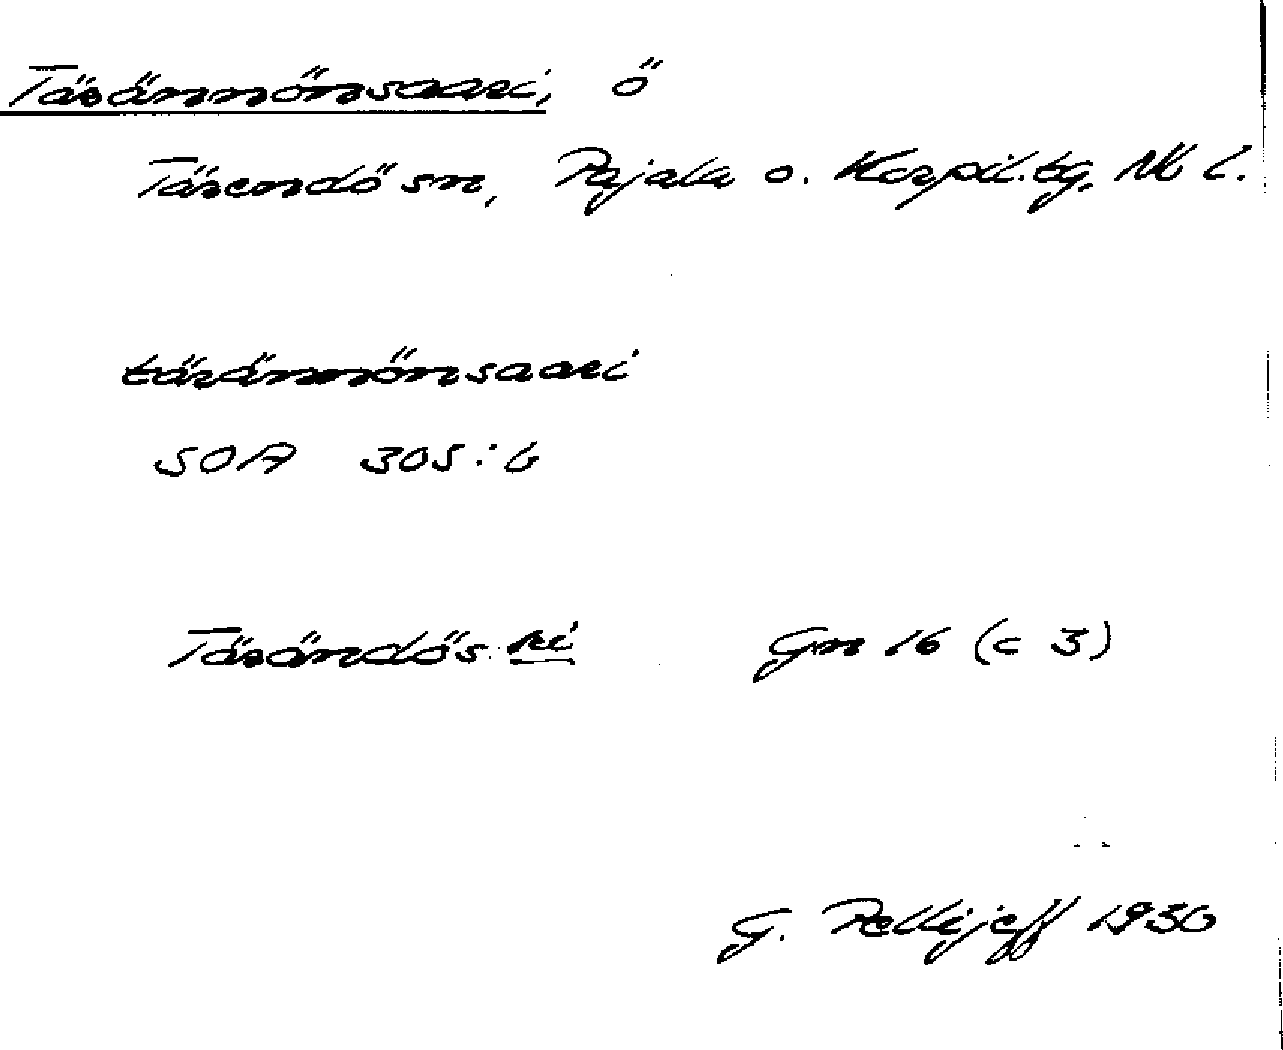 Täränmönsaari, ö
Tärendö sn, Pajala o. Korpil. tg, Nb l.
täränmönsaari
SOA 305:6
Tärändös:ri Gn 16 (c 3)
G. Pellijeff 1950